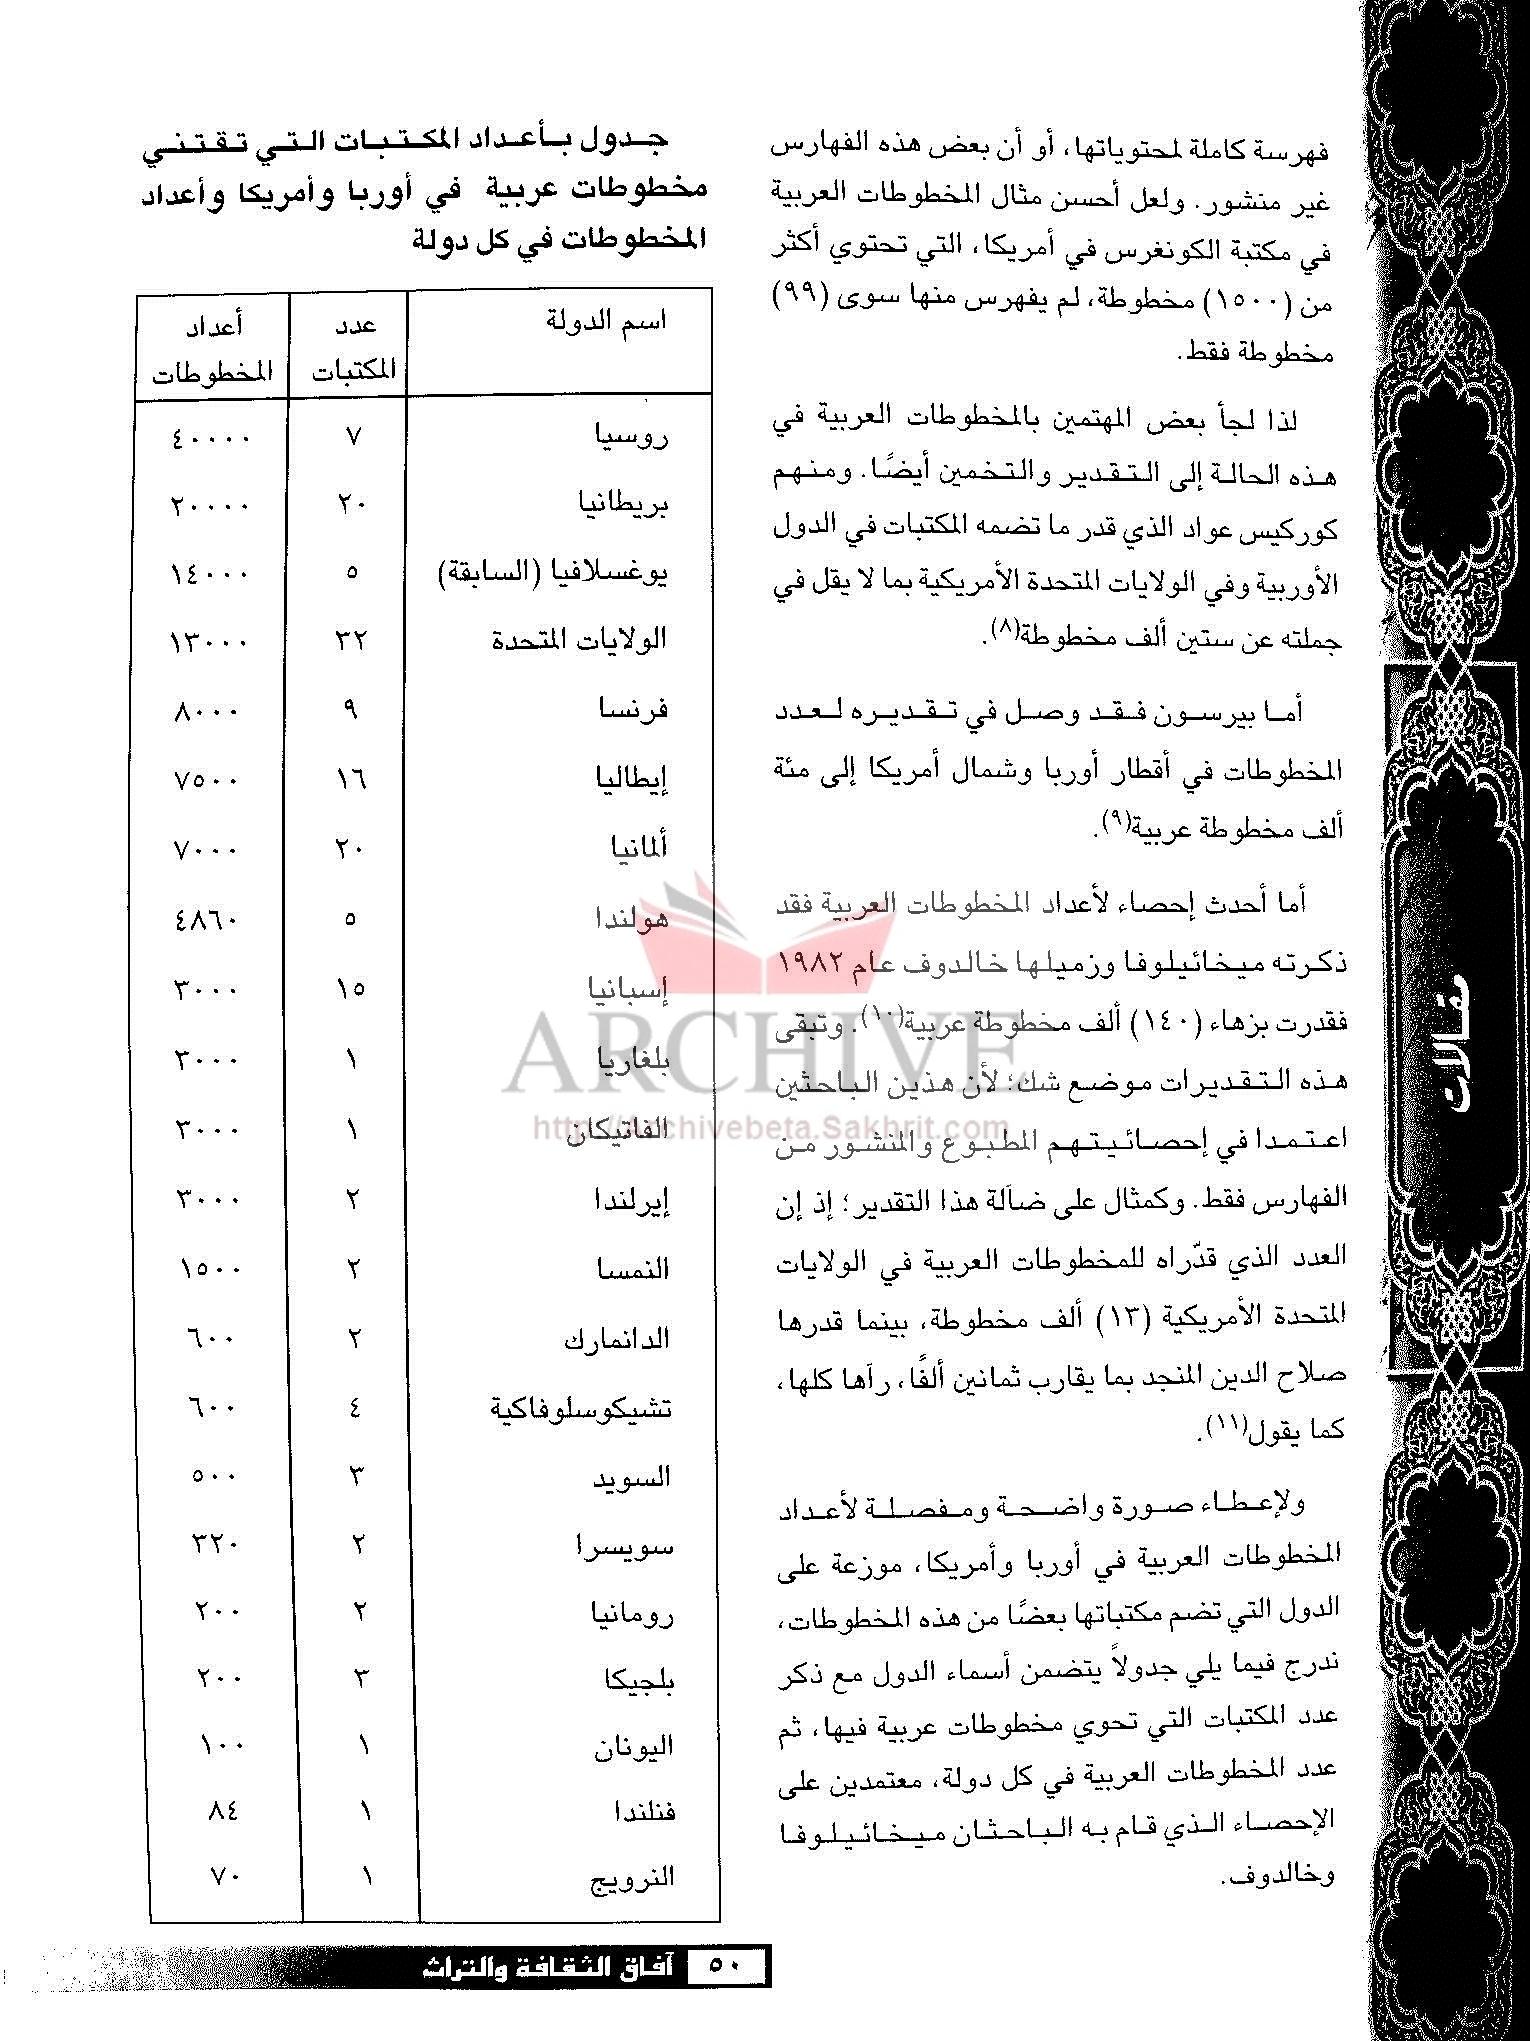 فهرسة كاملة لمحتوياتها، أو أن بعض هذه الفهارس
غير منشور. ولعل أحسن مثال المخطوطات العربية
في مكتبة الكونغرس في أمريكا، التي تحتوي أكثر
من (١٥٠٠) مخطوطة، لم يفهرس منها سوى (٩٩)
مخطوطة فقط.
لذا لجأ بعض المهتمين بالمخطوطات العربية في
هذه الحالة إلى التقدير والتخمين أيضًا. ومنهم
كوركيس عواد الذي قدر ما تضمه المكتبات في الدول
الأوربية وفي الولايات المتحدة الأمريكية بما لا يقل في
جملته عن ستين ألف مخطوطة(٨).
أما بيرسون فقد وصل في تقديره لعدد
المخطوطات في أقطار أوربا وشمال أمريكا إلى مئة
ألف مخطوطة عربية(٩).
أما أحدث إحصاء لأعداد المخطوطات العربية فقد
ذكرته ميخائيلوفا وزميلها خالدوف عام ١٩٨٢
فقدرت بزهاء (١٤٠) ألف مخطوطة عربية(١٠). وتبقى
هذه التقديرات موضع شك؛ لأن هذين الباحثين
اعتمدا في إحصائيتهم المطبوع والمنشور من
الفهارس فقط. وكمثال على ضآلة هذا التقدير؛ إذ إن
العدد الذي قدّراه للمخطوطات العربية في الولايات
المتحدة الأمريكية (١٣) ألف مخطوطة، بينما قدرها
صلاح الدين المنجد بما يقارب ثمانين ألفًا، رآها كلها،
كما يقول(١١).
ولإعطاء صورة واضحة ومفصلة لأعداد
المخطوطات العربية في أوربا وأمريكا، موزعة على
الدول التي تضم مكتباتها بعضًا من هذه المخطوطات،
ندرج فيما يلي جدولاً يتضمن أسماء الدول مع ذكر
عدد المكتبات التي تحوي مخطوطات عربية فيها، ثم
عدد المخطوطات العربية في كل دولة، معتمدين على
الإحصاء الذي قام به الباحثان ميخائيلوفا
وخالدوف.
جدول بأعداد المكتبات التي تقتني
مخطوطات عربية في أوربا وأمريكا وأعداد
المخطوطات في كل دولة
اسم الدولة عدد أعداد
المكتبات المخطوطات
روسيا ٧ ٤٠٠٠٠
بريطانيا ٢٠ ٢٠٠٠٠
يوغسلافيا (السابقة) ٥ ١٤٠٠٠
الولايات المتحدة ٣٢ ١٣٠٠٠
فرنسا ٩ ٨٠٠٠
إيطاليا ١٦ ٧٥٠٠
ألمانيا ٢٠ ٧٠٠٠
هولندا ٥ ٤٨٦٠
إسبانيا ١٥ ٣٠٠٠
بلغاريا ١ ٣٠٠٠
الفاتيكان ١ ٣٠٠٠
إيرلندا ٢ ٣٠٠٠
النمسا ٢ ١٥٠٠
الدانمارك ٢ ٦٠٠
تشيكوسلوفاكية ٤ ٦٠٠
السويد ٣ ٥٠٠
سويسرا ٢ ٣٢٠
رومانيا ٢ ٢٠٠
بلجيكا ٣ ٢٠٠
اليونان ١ ١٠٠
فنلندا ١ ٨٤
النرويج ١ ٧٠
ARCHIVE
http://Archivebeta.Sakhrit.com
مقالات
٥٠ آفاق الثقافة والتراث